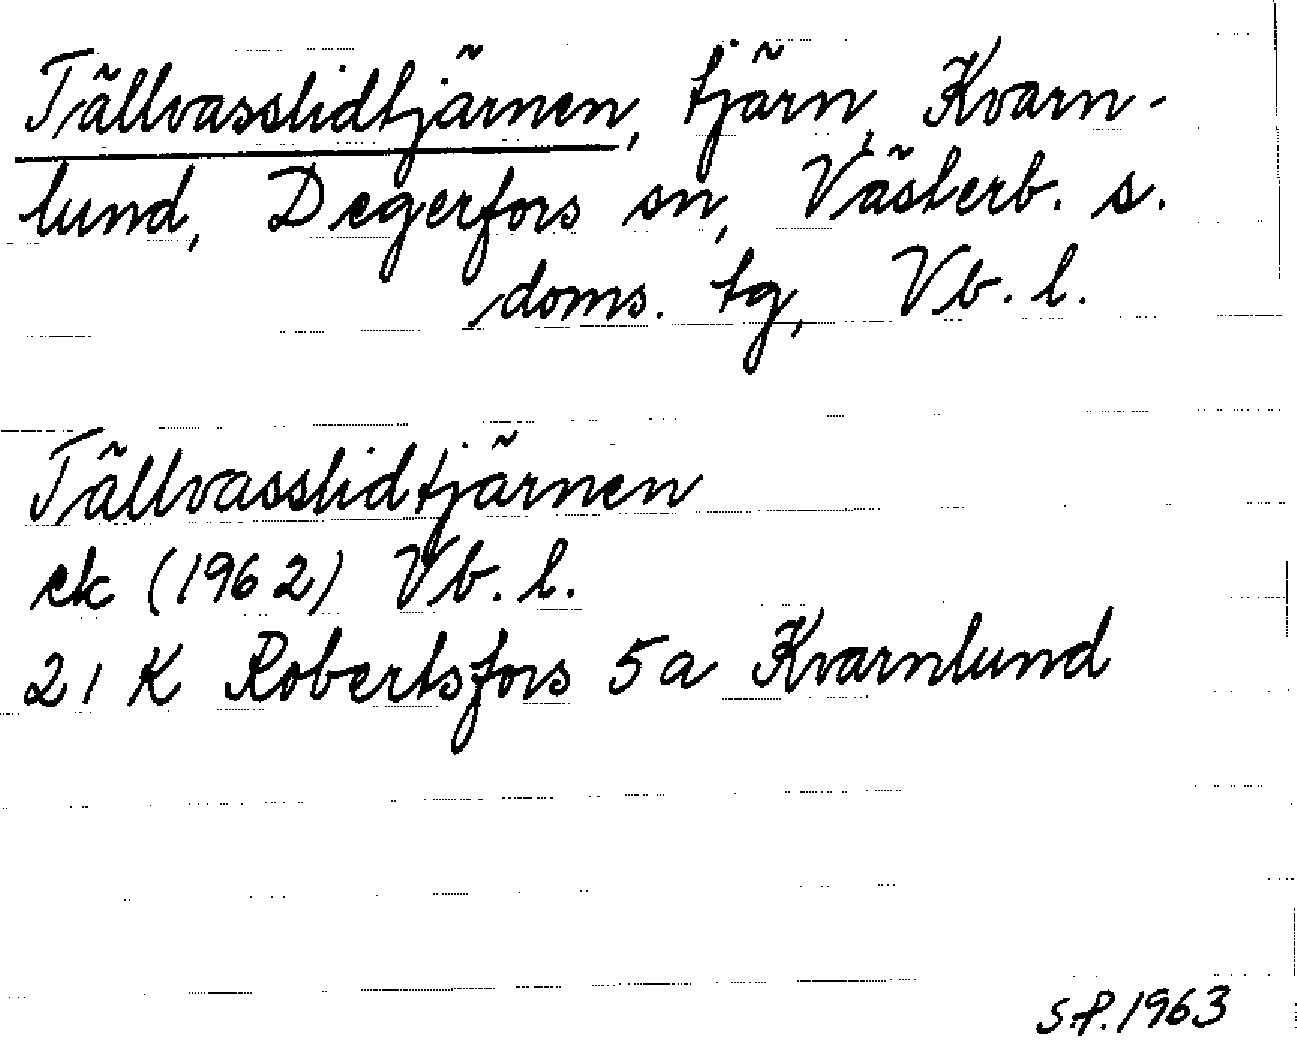 Tällvasslidtjärnen, tjärn, Kvarn-
lund, Degerfors sn, Västerb. s.
doms. tg, Vb. l.
Tällvasslidtjärnen
ek (1962) Vb. l.
21 K Robertsfors 5a Kvarnlund
S.P. 1963